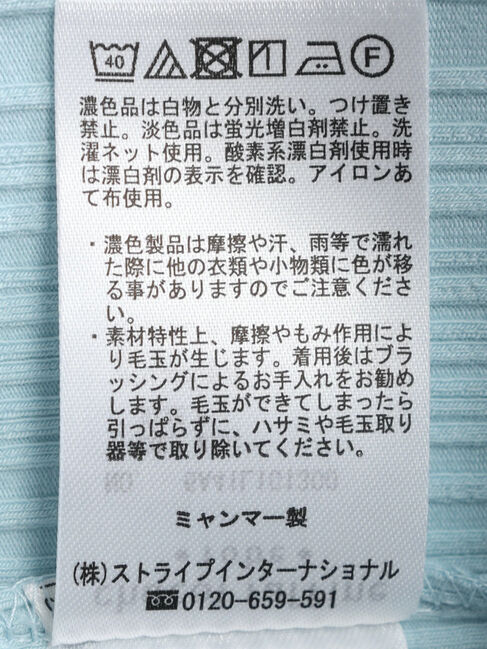 40 F
濃色品は白物と分別洗い。つけ置き
禁止。淡色品は蛍光増白剤禁止。洗
濯ネット使用。酸素系漂白剤使用時
は漂白剤の表示を確認。アイロンあ
て布使用。
・濃色製品は摩擦や汗、雨等で濡れ
た際に他の衣類や小物類に色が移
る事がありますのでご注意くださ
い。
・素材特性上、摩擦やもみ作用によ
り毛玉が生じます。着用後はブラ
ッシングによるお手入れをお勧め
します。毛玉ができてしまったら
引っぱらずに、ハサミや毛玉取り
器等で取り除いてください。
ミャンマー製
(株)ストライプインターナショナル
0120-659-591